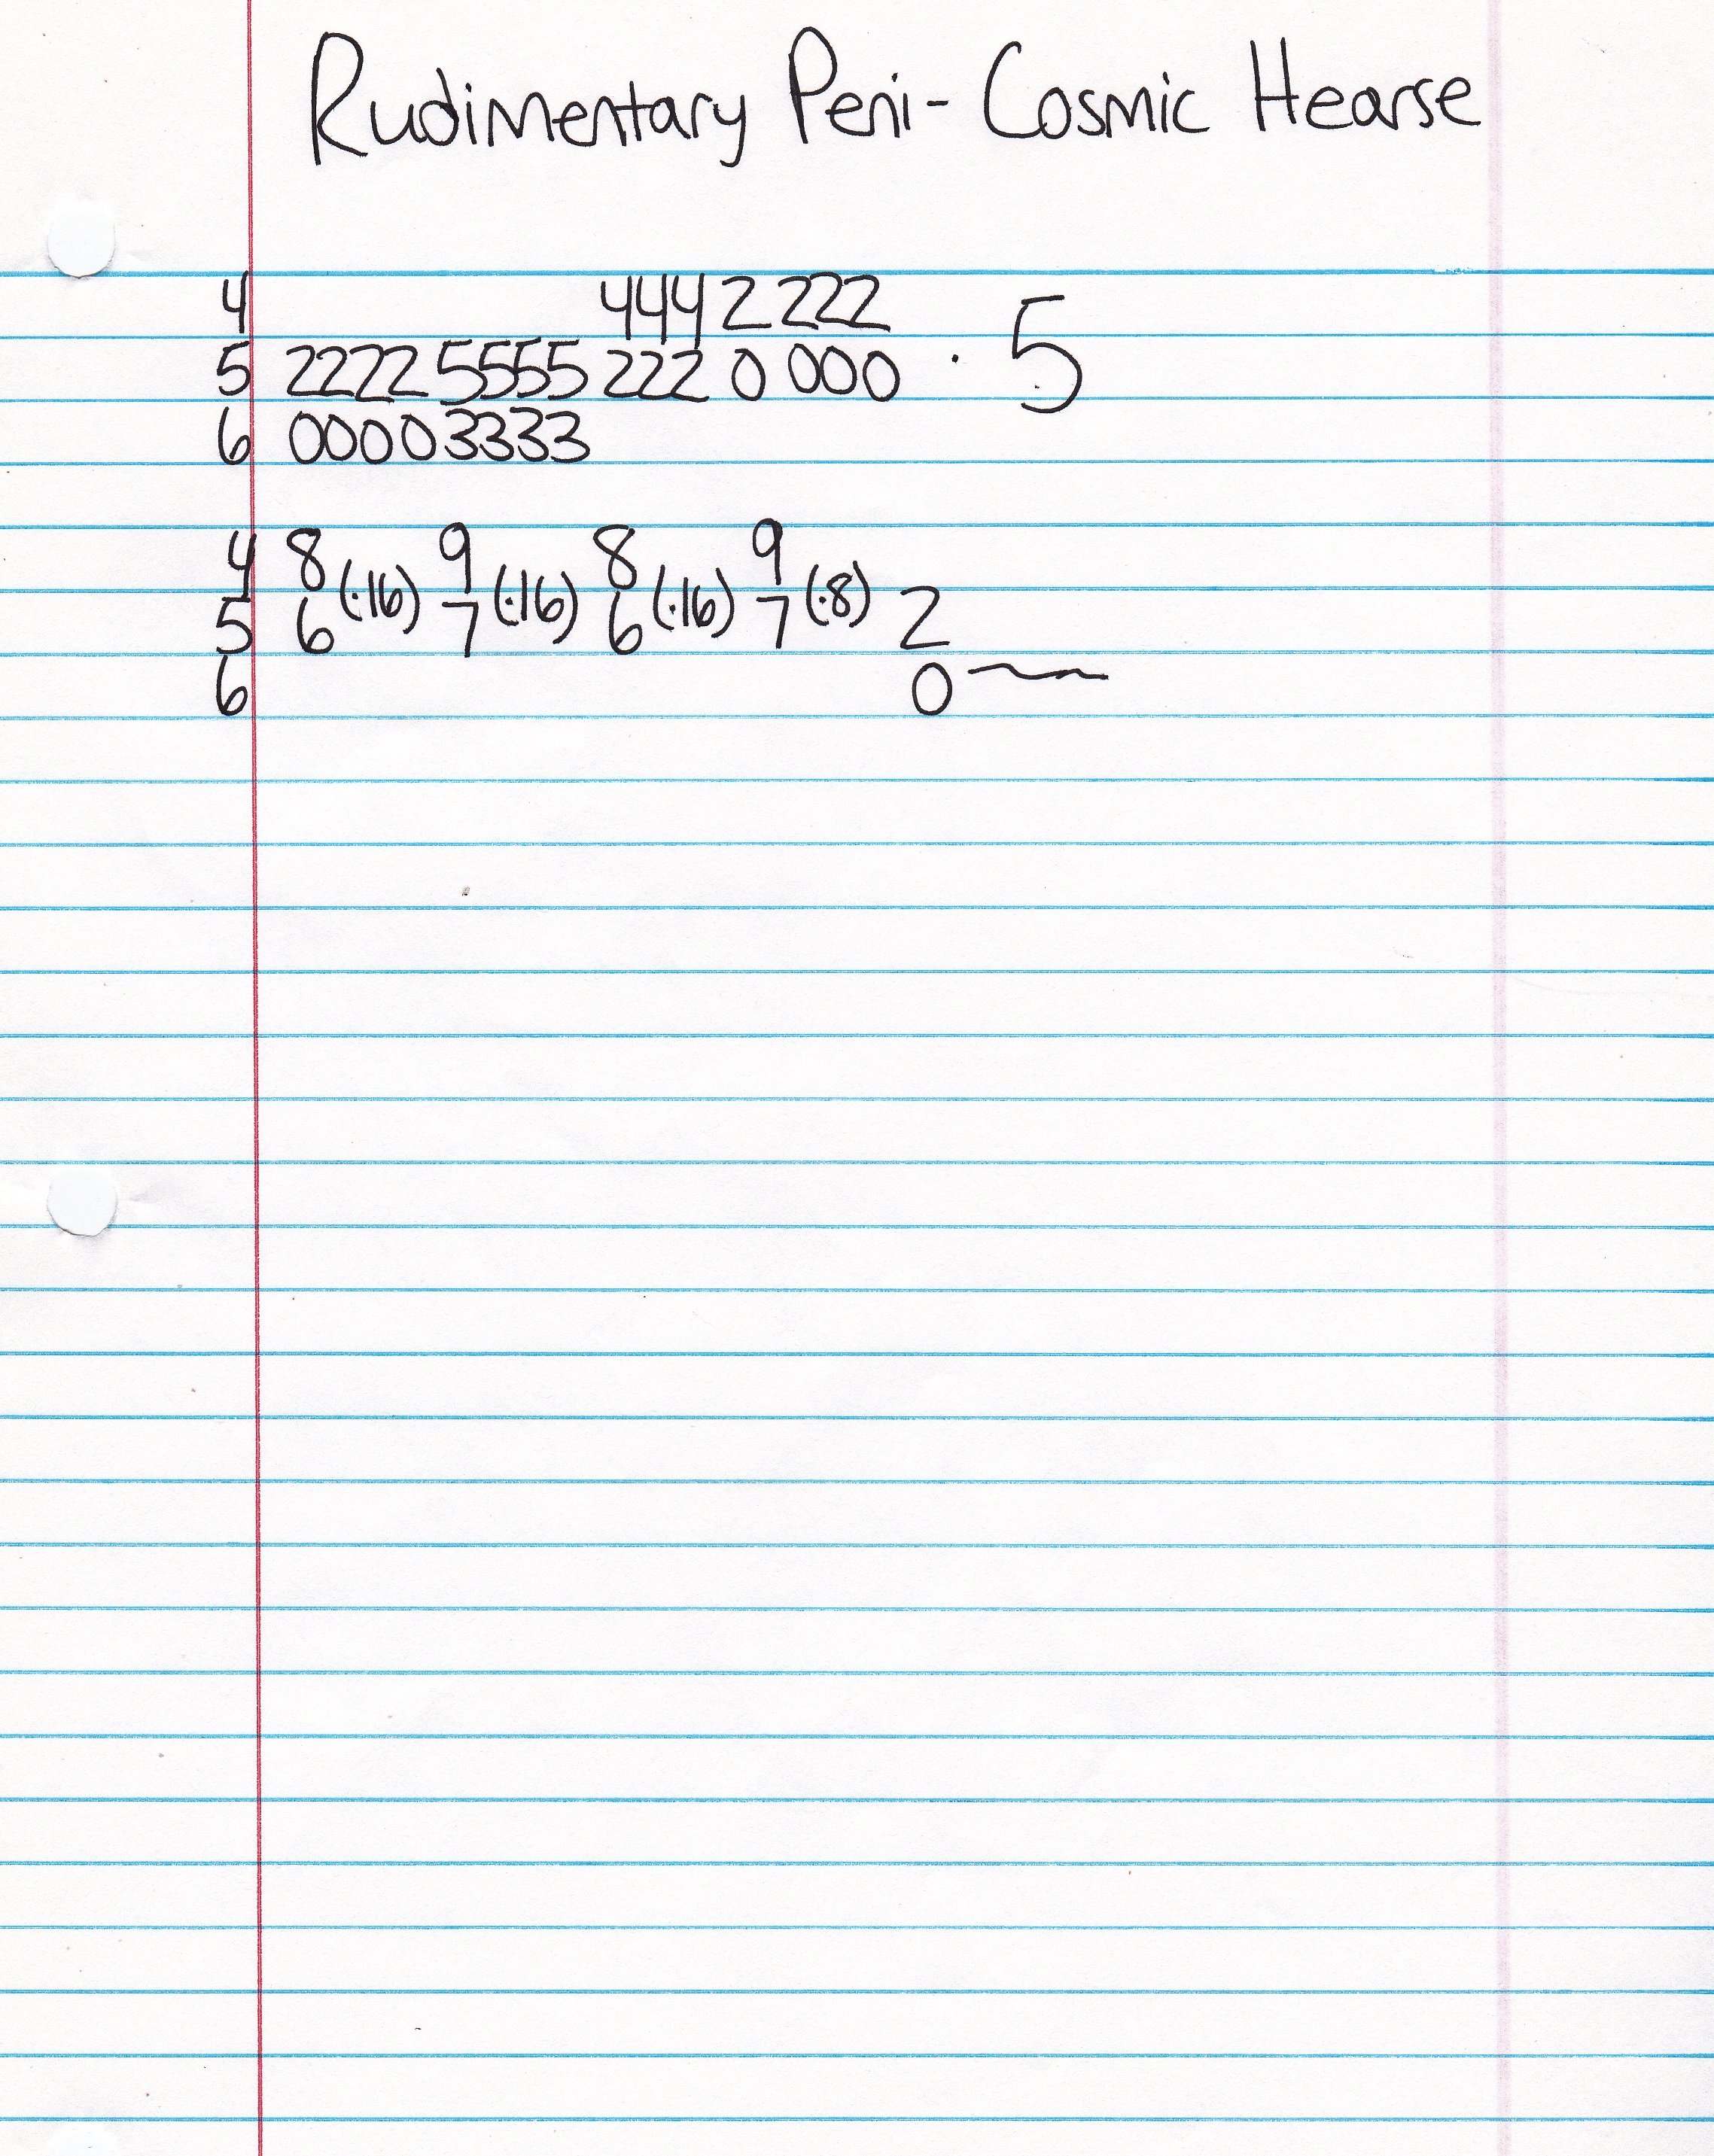 Rudimentary Peni - Cosmic Hearse
4 444 2 222
5 2222 5555 222 0 000 · 5
6 0000 3333
4 8 9 8 9
5 6 (·16) 7 (·16) 6 (·16) 7 (·8) 2
6 0